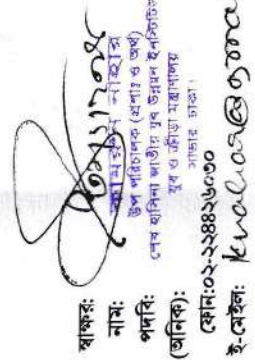 স্বাক্ষর:
নাম: নাহার
পদবি: উপ পরিচালক (প্রশাঃ ও অর্থ)
শেখ হাসিনা জাতীয় যুব উন্নয়ন ইনস্টিটিউট
(অনিক): যুব ও ক্রীড়া মন্ত্রণালয়
সাভার ঢাকা।
ফোন:০২-২২৪৪২৬৩৩০
ই-মেইল: